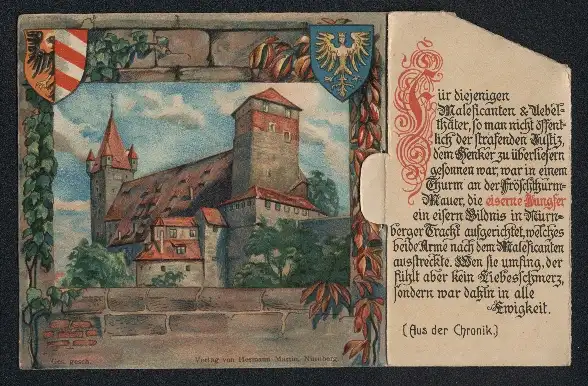 Für diejenigen
Maleficanten & Uebel-
thäter, so man nicht öffent-
lich der strafenden Justiz,
dem Henker zu überliefern
gesonnen war, war in einem
Thurm an der Fröschthurm-
Mauer, die eiserne Jungfer
ein eisern Bildnis in Nürn-
berger Tracht aufgerichtet, welches
beide Arme nach dem Maleficanten
ausstreckte. Wen sie umfing, der
fühlt aber kein Liebesschmerz,
sondern war dahin in alle
Ewigkeit.
(Aus der Chronik.)
Ges. gesch.
Verlag von Hermann Martin, Nürnberg